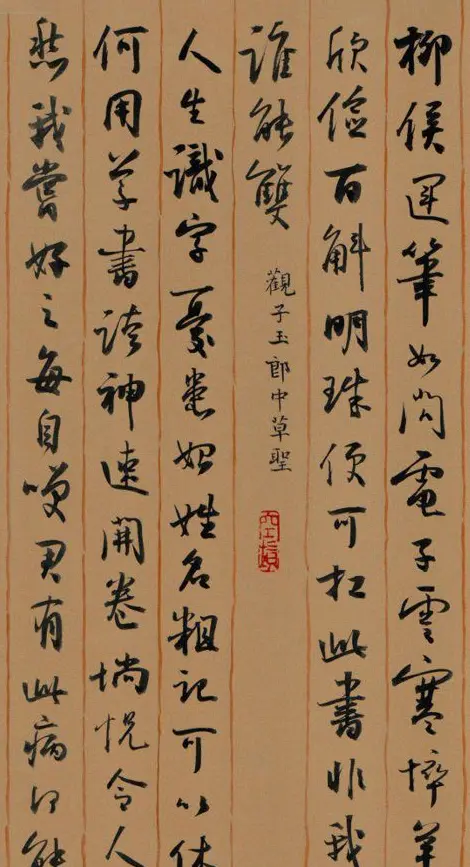 柳侯運筆如閃電子雲寒悴羊
欣儉百斛明珠便可扛此書非我
誰能雙
觀子玉郎中草聖
人生識字憂患始姓名粗記可以休
何用草書誇神速開卷惝怳令人
愁我嘗好之每自笑君有此病何能